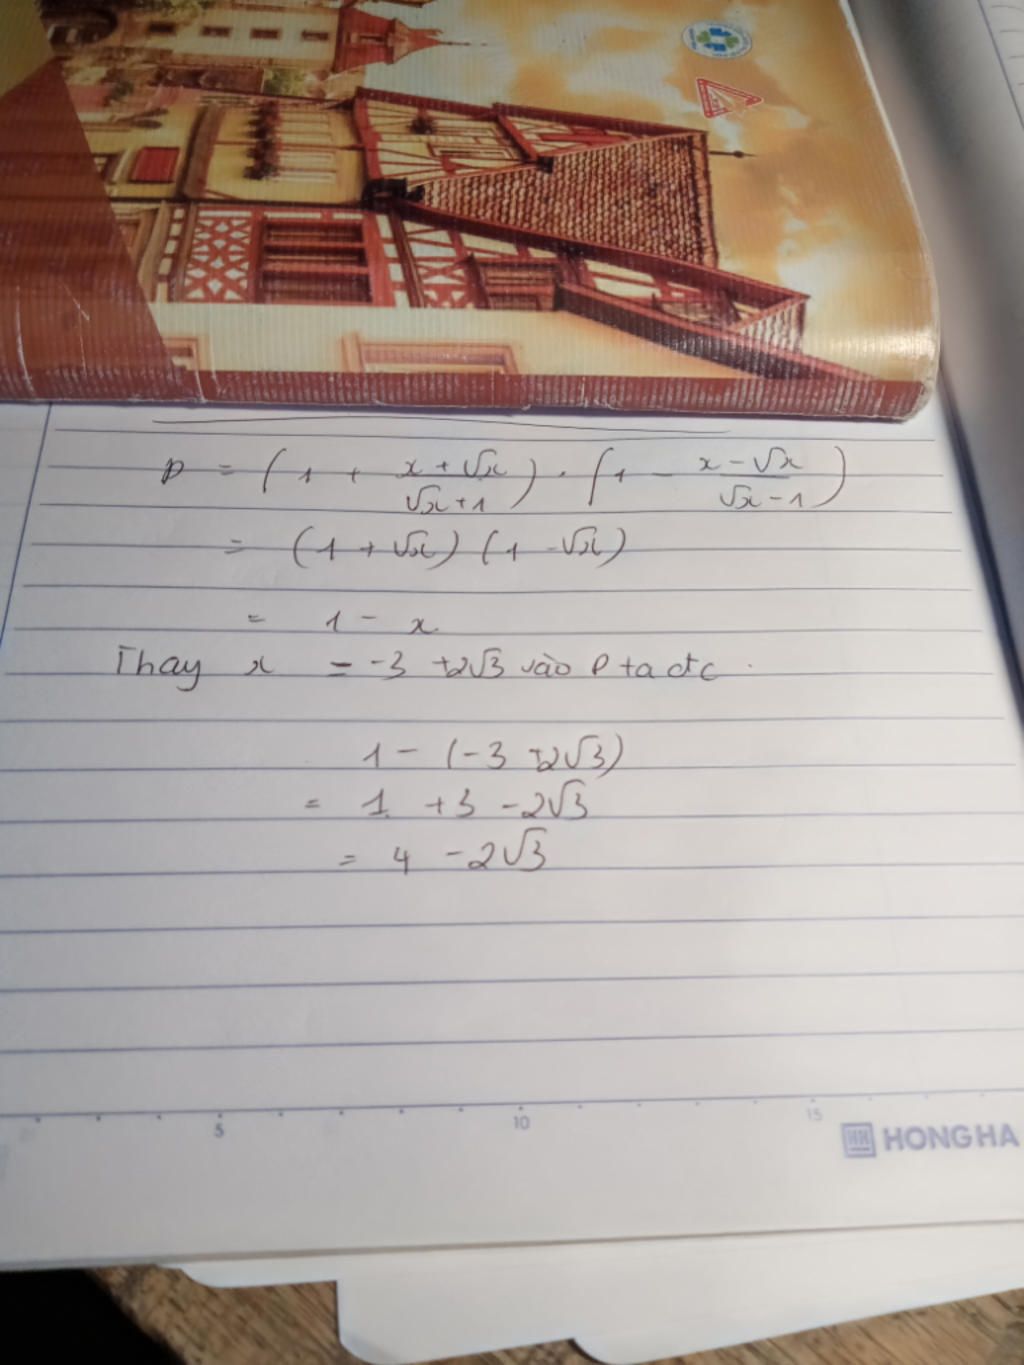 P = (1 + \frac{x + √x}{√x + 1}) . (1 - \frac{x - √x}{√x - 1})
= (1 + √x) (1 - √x)
= 1 - x
Thay x = -3 +2√3 vào P ta đc .
1 - (-3 +2√3)
= 1 +3 -2√3
= 4 -2√3
5 10 15
HONG HA